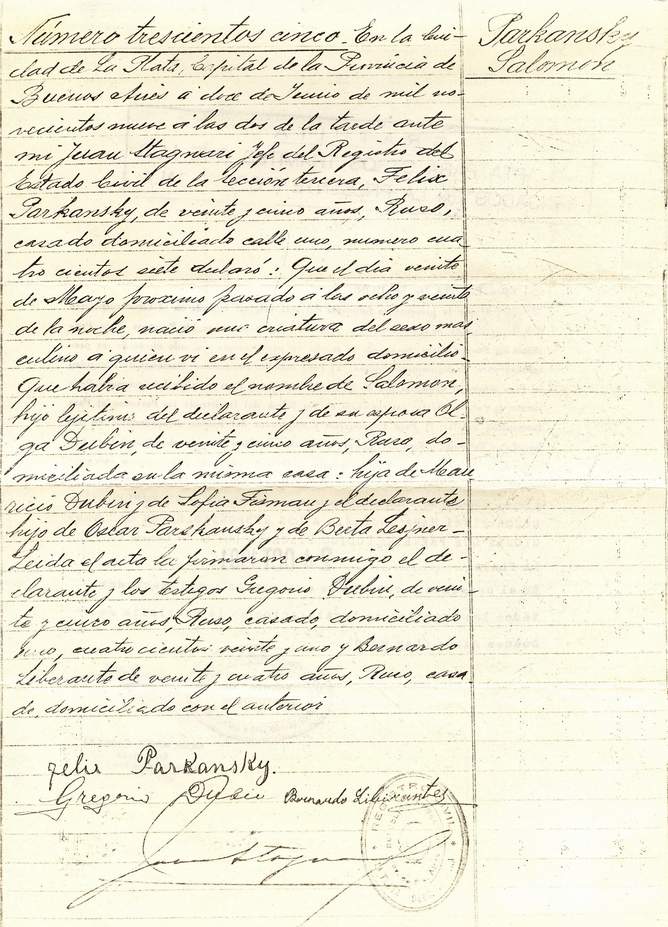 Número trescientos cinco. En la Ciu-
dad de La Plata, Capital de la Provincia de
Buenos Aires á doce de Junio de mil no-
vecientos nueve á las dos de la tarde ante
mi Juan Stagnari Jefe del Registro del
Estado Civil de la sección tercera, Felix
Parkansky, de veinte y cinco años, Ruso,
casado domiciliado calle uno, numero cua
tro cientos siete declaró: Que el dia veinte
de Mayo proximo pasado á las ocho y veinte
de la noche, nació una criatura del sexo mas
culino á quien vi en el expresado domicilio.
Que habra recibido el nombre de Salomon,
hijo lejitimo del declarante y de su esposa Ol-
ga Dubin, de veinte y cinco años, Rusa, do-
miciliada en la misma casa: hija de Mau
ricio Dubin y de Sofia Fisman y el declarante
hijo de Oscar Parskansky y de Berta Lesjner-
Leida el acta la firmaron conmigo el de-
clarante y los testigos Gregorio Dubin, de vein-
te y cinco años, Ruso, casado, domiciliado
uno, cuatrocientos veinte y uno y Bernardo
Liberante de veinte y cuatro años, Ruso, casa
do, domiciliado con el anterior
Parkansky
Salomón
Felix Parkansky.
Gregorio Dubin Bernardo Liberantes
Juan Stagnari
REGISTRO CIVIL